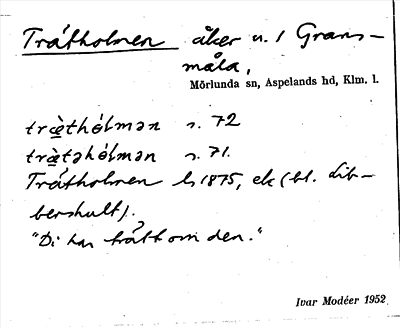 Tråtholmen åker n. 1 Grans-
måla,
Mörlunda sn, Aspelands hd, Klm. l.
træ̀thólmən s. 72
træ̀təhólmən s. 71.
Tråtholmen ls 1875, ek (bl. Lib-
bershult).
"Di har trått om den."
Ivar Modéer 1952